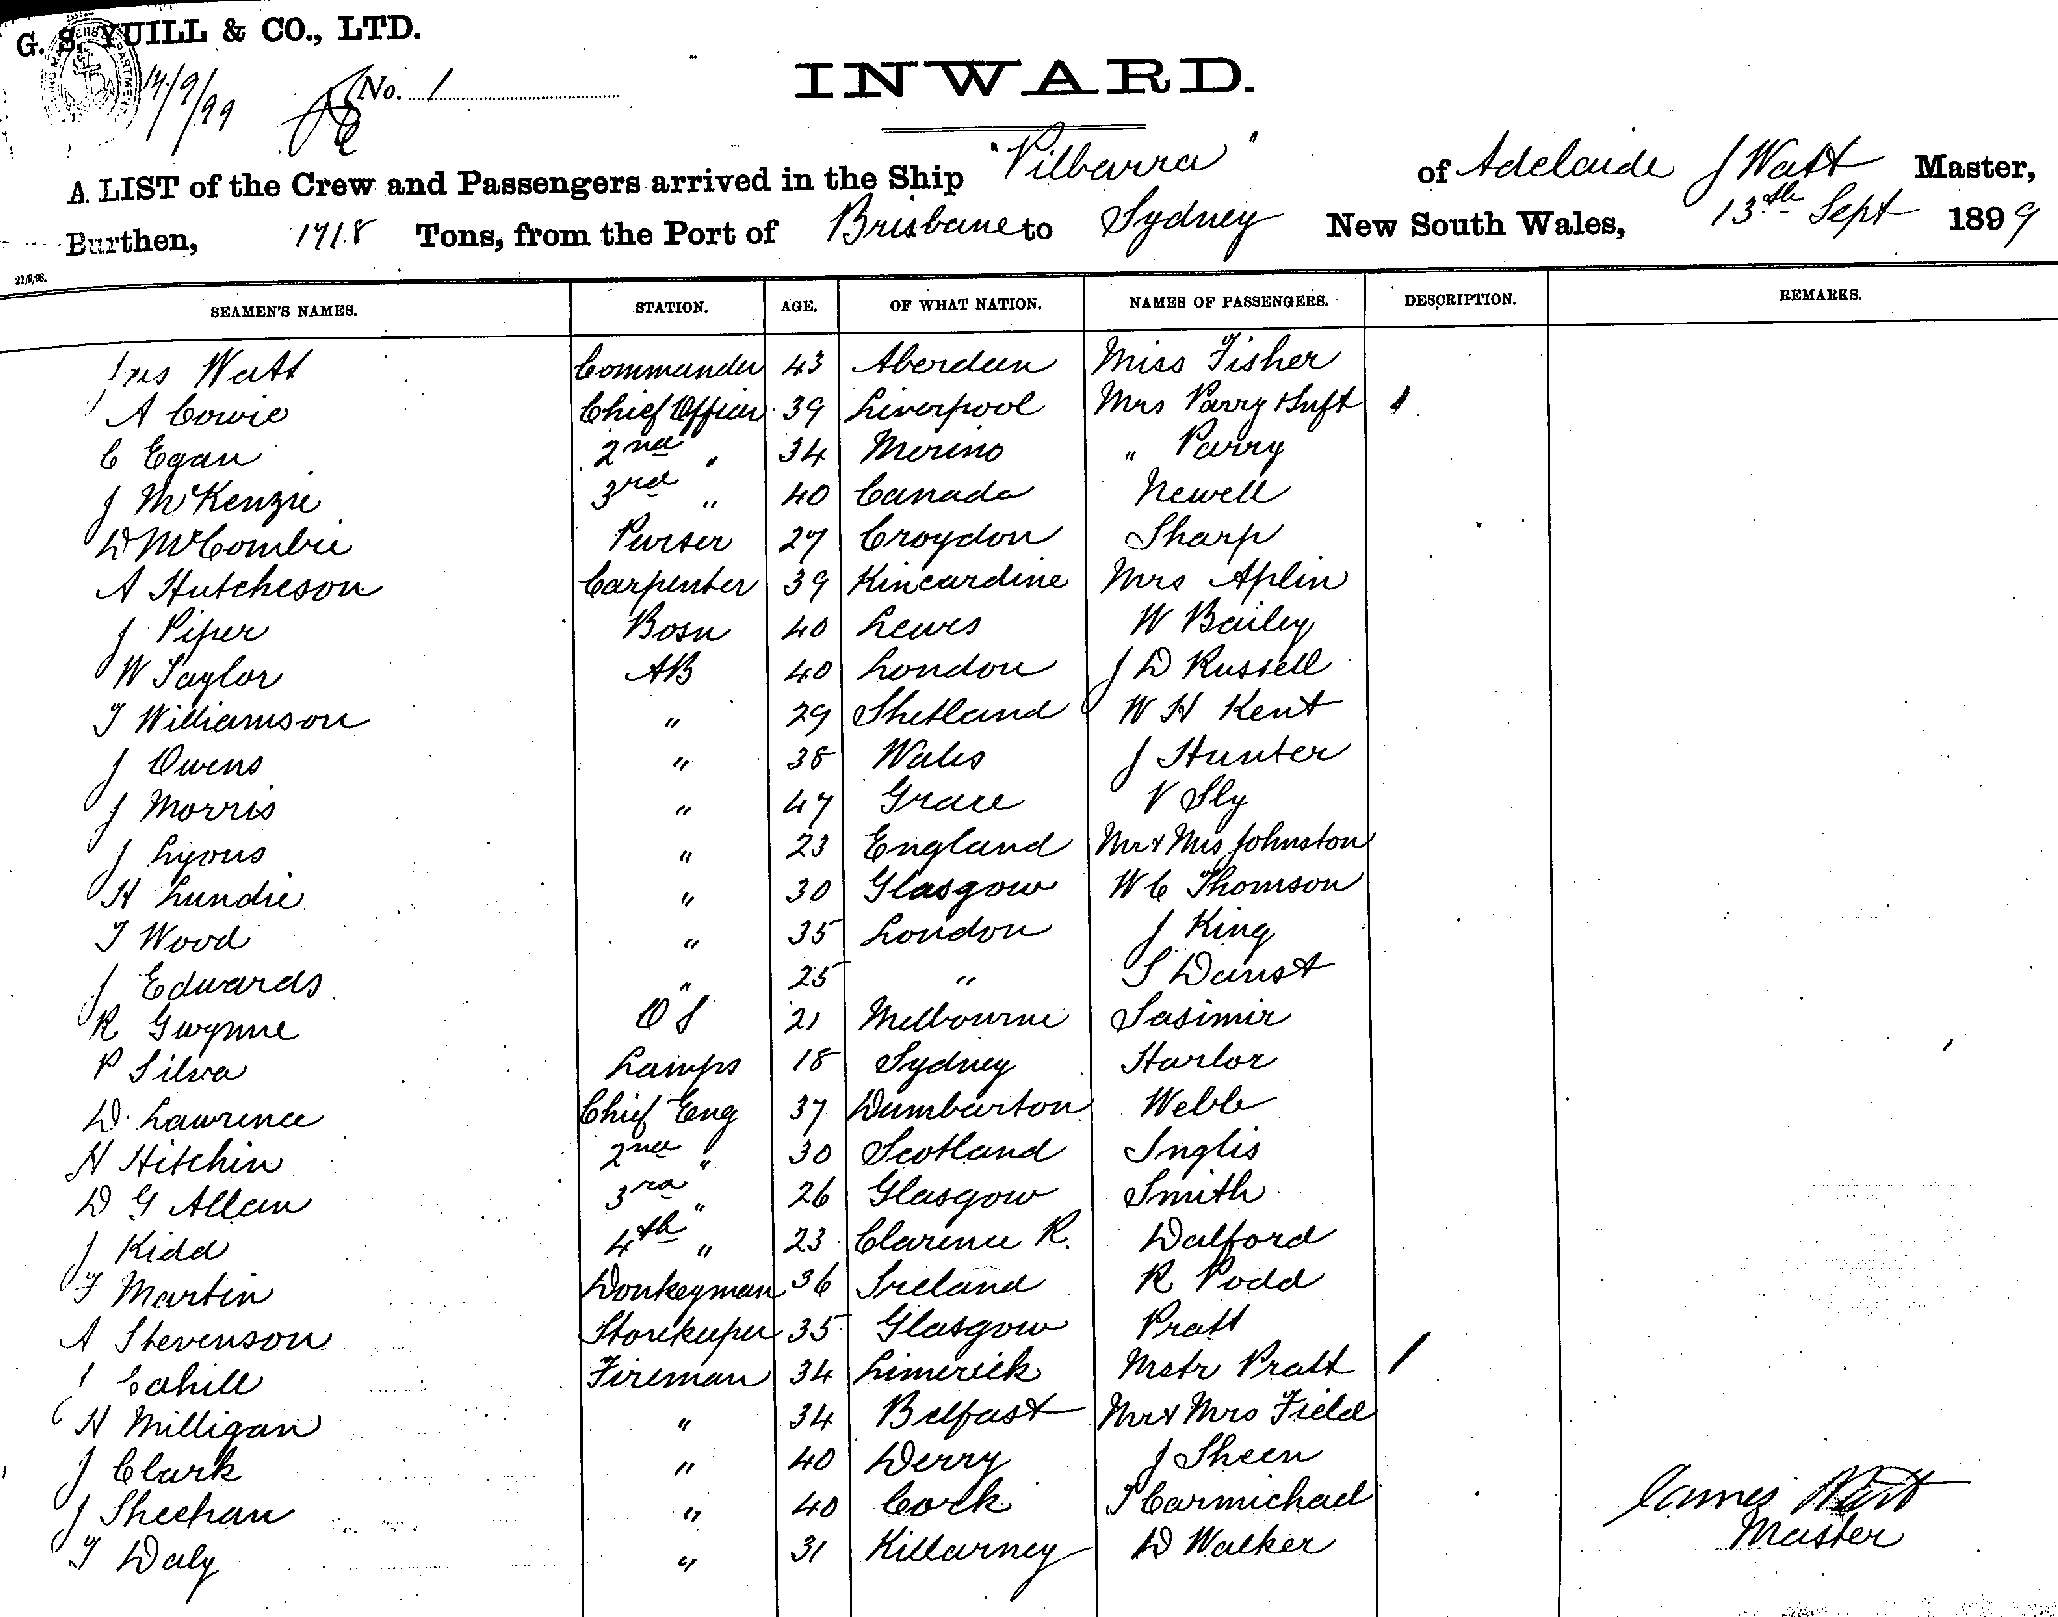 G. S. YUILL & CO., LTD.
14/9/99 No. 1
INWARD.
A LIST of the Crew and Passengers arrived in the Ship "Pilbarra" of Adelaide J Watt Master,
Burthen, 1718 Tons, from the Port of Brisbane to Sydney New South Wales, 13th Sept 1899
SEAMEN'S NAMES. STATION. AGE. OF WHAT NATION. NAMES OF PASSENGERS. DESCRIPTION. REMARKS.
Jas Watt Commander 43 Aberdeen Miss Fisher
A Cowie Chief Officer 39 Liverpool Mrs Parry & Inft 1
C Egan 2nd " 34 Merino " Parry
J McKenzie 3rd " 40 Canada Newell
D McCombie Purser 27 Croydon Sharp
A Hutcheson Carpenter 39 Kincardine Mrs Aplin
J Piper Bosn 40 Lewes W Bailey
W Taylor AB 40 London J D Russell
T Williamson " 29 Shetland W H Kent
J Owens " 38 Wales J Hunter
J Morris " 47 Grace V Sly
J Lyons " 23 England Mr & Mrs Johnston
H Lundie " 30 Glasgow W C Thomson
T Wood " 35 London J King
J Edwards " 25 " S Danst
R Gwynne OS 21 Melbourne Sasimir
P Silva Lamps 18 Sydney Harlor
D. Lawrence Chief Eng 37 Dumbarton Webb
H Hitchin 2nd " 30 Scotland Inglis
D G Allan 3rd " 26 Glasgow Smith
J Kidd 4th " 23 Clarence R. Walford
T Martin Donkeyman 36 Ireland R Podd
A Stevenson Storekeeper 35 Glasgow Pratt
Cahill Fireman 34 Limerick Mstr Pratt 1
H Milligan " 34 Belfast Mr & Mrs Field
J Clark " 40 Derry J Sheen
J Sheehan " 40 Cork T Carmichael James Watt
T Daly " 31 Killarney D Walker Master